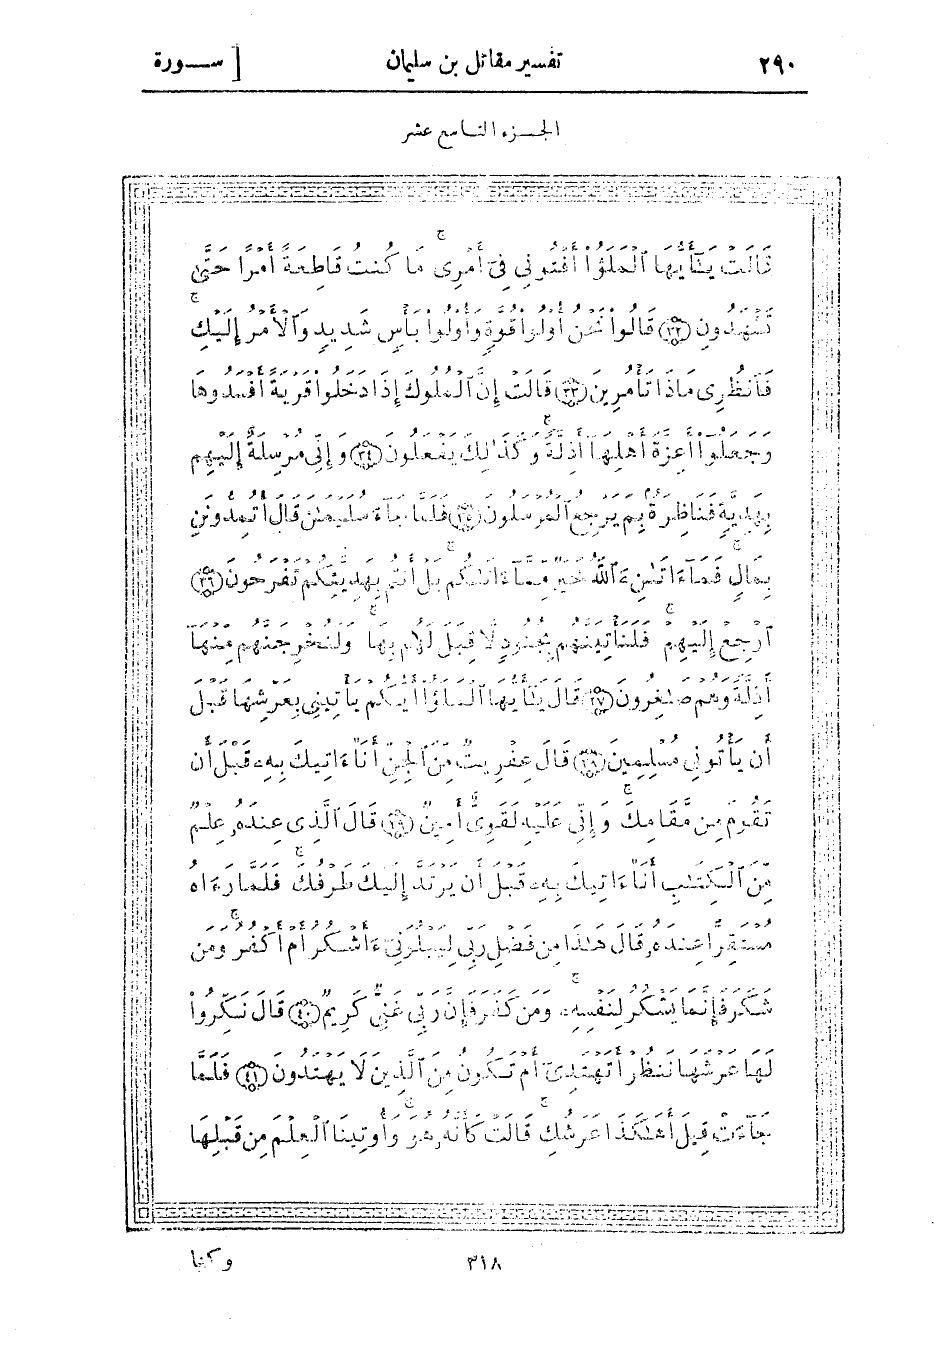 ٢٩٠ تفسير مقاتل بن سليمان [ سورة
الجزء التاسع عشر
قَالَتْ يَٰٓأَيُّهَا ٱلْمَلَؤُا۟ أَفْتُونِى فِىٓ أَمْرِى مَا كُنتُ قَاطِعَةً أَمْرًا حَتَّىٰ
تَشْهَدُونِ ﴿٣٢﴾ قَالُوا۟ نَحْنُ أُو۟لُوا۟ قُوَّةٍ وَأُو۟لُوا۟ بَأْسٍ شَدِيدٍ وَٱلْأَمْرُ إِلَيْكِ
فَٱنظُرِى مَاذَا تَأْمُرِينَ ﴿٣٣﴾ قَالَتْ إِنَّ ٱلْمُلُوكَ إِذَا دَخَلُوا۟ قَرْيَةً أَفْسَدُوهَا
وَجَعَلُوٓا۟ أَعِزَّةَ أَهْلِهَآ أَذِلَّةً وَكَذَٰلِكَ يَفْعَلُونَ ﴿٣٤﴾ وَإِنِّى مُرْسِلَةٌ إِلَيْهِم
بِهَدِيَّةٍ فَنَاظِرَةٌۢ بِمَ يَرْجِعُ ٱلْمُرْسَلُونَ ﴿٣٥﴾ فَلَمَّا جَآءَ سُلَيْمَٰنَ قَالَ أَتُمِدُّونَنِ
بِمَالٍ فَمَآ ءَاتَىٰنِۦَ ٱللَّهُ خَيْرٌ مِّمَّآ ءَاتَىٰكُم بَلْ أَنتُم بِهَدِيَّتِكُمْ تَفْرَحُونَ ﴿٣٦﴾
ٱرْجِعْ إِلَيْهِمْ فَلَنَأْتِيَنَّهُم بِجُنُودٍ لَّا قِبَلَ لَهُم بِهَا وَلَنُخْرِجَنَّهُم مِّنْهَآ
أَذِلَّةً وَهُمْ صَٰغِرُونَ ﴿٣٧﴾ قَالَ يَٰٓأَيُّهَا ٱلْمَلَؤُا۟ أَيُّكُمْ يَأْتِينِى بِعَرْشِهَا قَبْلَ
أَن يَأْتُونِى مُسْلِمِينَ ﴿٣٨﴾ قَالَ عِفْرِيتٌ مِّنَ ٱلْجِنِّ أَنَا۠ ءَاتِيكَ بِهِۦ قَبْلَ أَن
تَقُومَ مِن مَّقَامِكَ وَإِنِّى عَلَيْهِ لَقَوِىٌّ أَمِينٌ ﴿٣٩﴾ قَالَ ٱلَّذِى عِندَهُۥ عِلْمٌ
مِّنَ ٱلْكِتَٰبِ أَنَا۠ ءَاتِيكَ بِهِۦ قَبْلَ أَن يَرْتَدَّ إِلَيْكَ طَرْفُكَ فَلَمَّا رَءَاهُ
مُسْتَقِرًّا عِندَهُۥ قَالَ هَٰذَا مِن فَضْلِ رَبِّى لِيَبْلُوَنِىٓ ءَأَشْكُرُ أَمْ أَكْفُرُ وَمَن
شَكَرَ فَإِنَّمَا يَشْكُرُ لِنَفْسِهِۦ وَمَن كَفَرَ فَإِنَّ رَبِّى غَنِىٌّ كَرِيمٌ ﴿٤٠﴾ قَالَ نَكِّرُوا۟
لَهَا عَرْشَهَا نَنظُرْ أَتَهْتَدِىٓ أَمْ تَكُونُ مِنَ ٱلَّذِينَ لَا يَهْتَدُونَ ﴿٤١﴾ فَلَمَّا
جَآءَتْ قِيلَ أَهَٰكَذَا عَرْشُكِ قَالَتْ كَأَنَّهُۥ هُوَ وَأُوتِينَا ٱلْعِلْمَ مِن قَبْلِهَا
٣١٨ وكنا